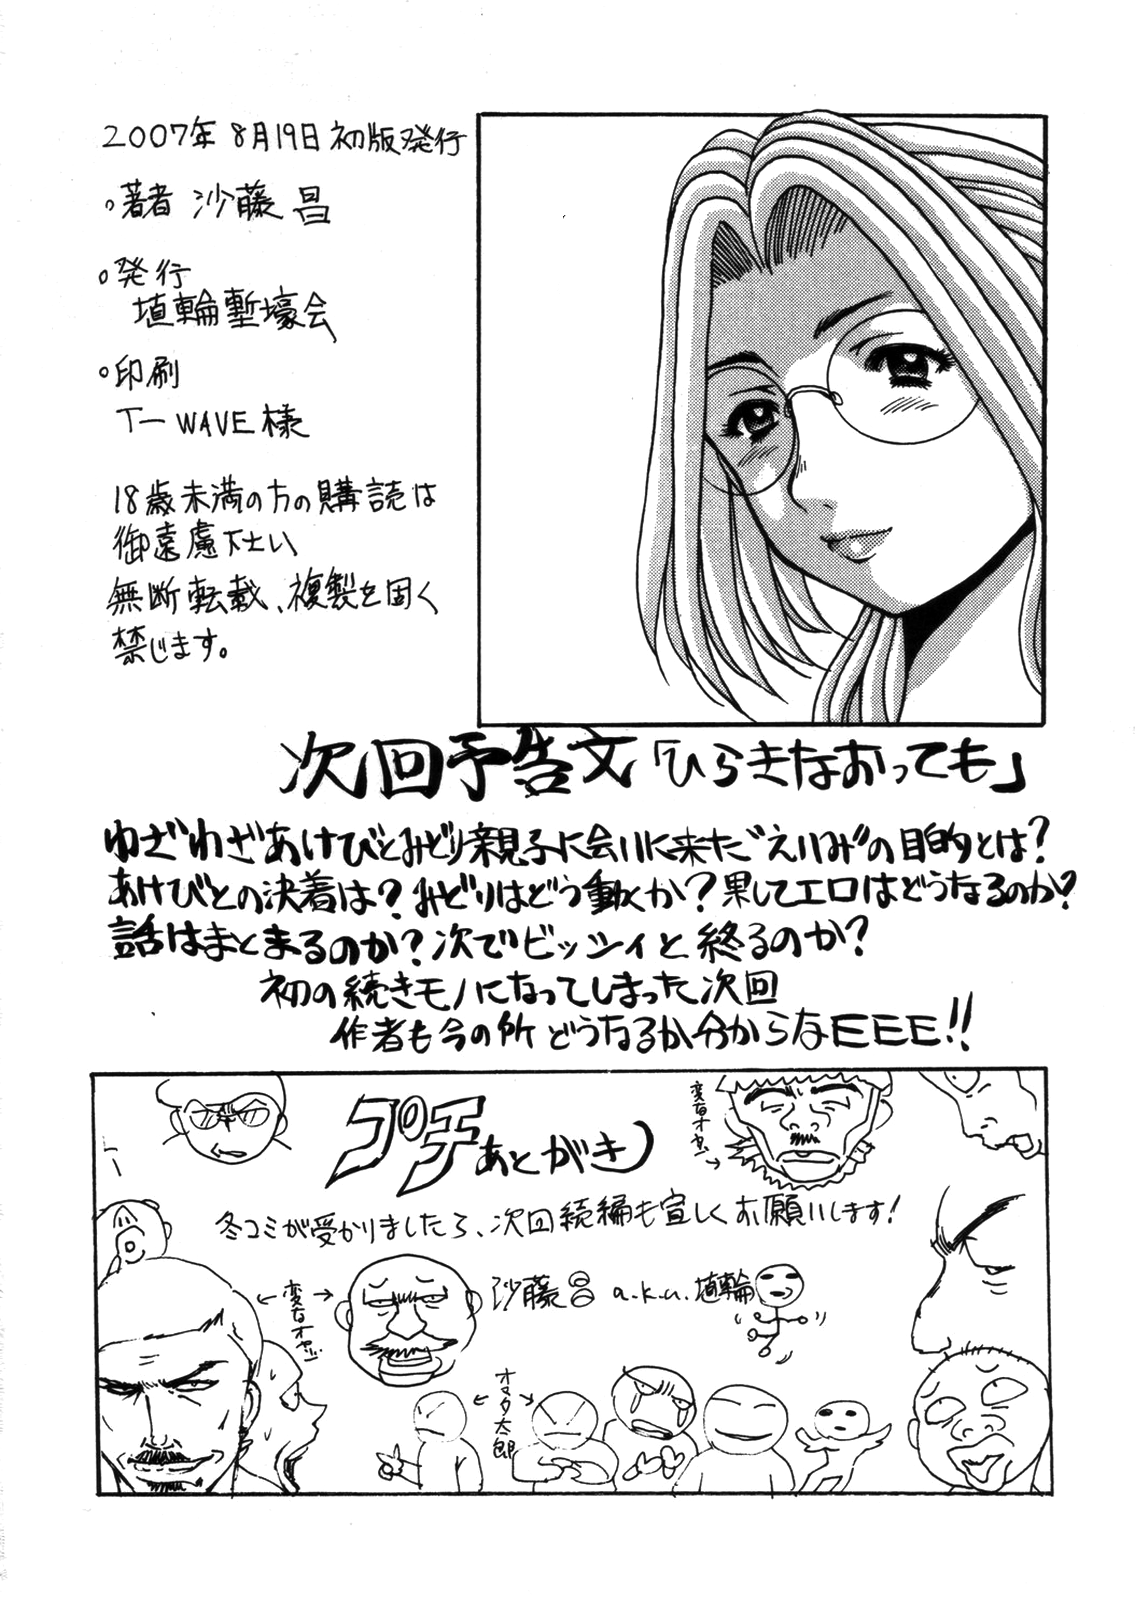 2007年 8月19日 初版発行
。著者 沙藤 昌
。発行
埴輪塹壕会
。印刷
T-WAVE様
18歳未満の方の購読は
御遠慮下さい
無断転載、複製を固く
禁じます。
次回予告文「ひらきなおっても」
わざわざあけびとみどり親子に会いに来た“えいみ”の目的とは?
あけびとの決着は?みどりはどう動くか?果してエロはどうなるのか?
話はまとまるのか?次でビッシィと終るのか?
初の続きモノになってしまった次回
作者も今の所どうなるか分からなEEE!!
プチあとがき
変なオヤジ→
冬コミが受かりましたら、次回続編も宜しくお願いします!
←変なオヤジ→
沙藤昌 a.k.a.埴輪
←オマタ太郎→